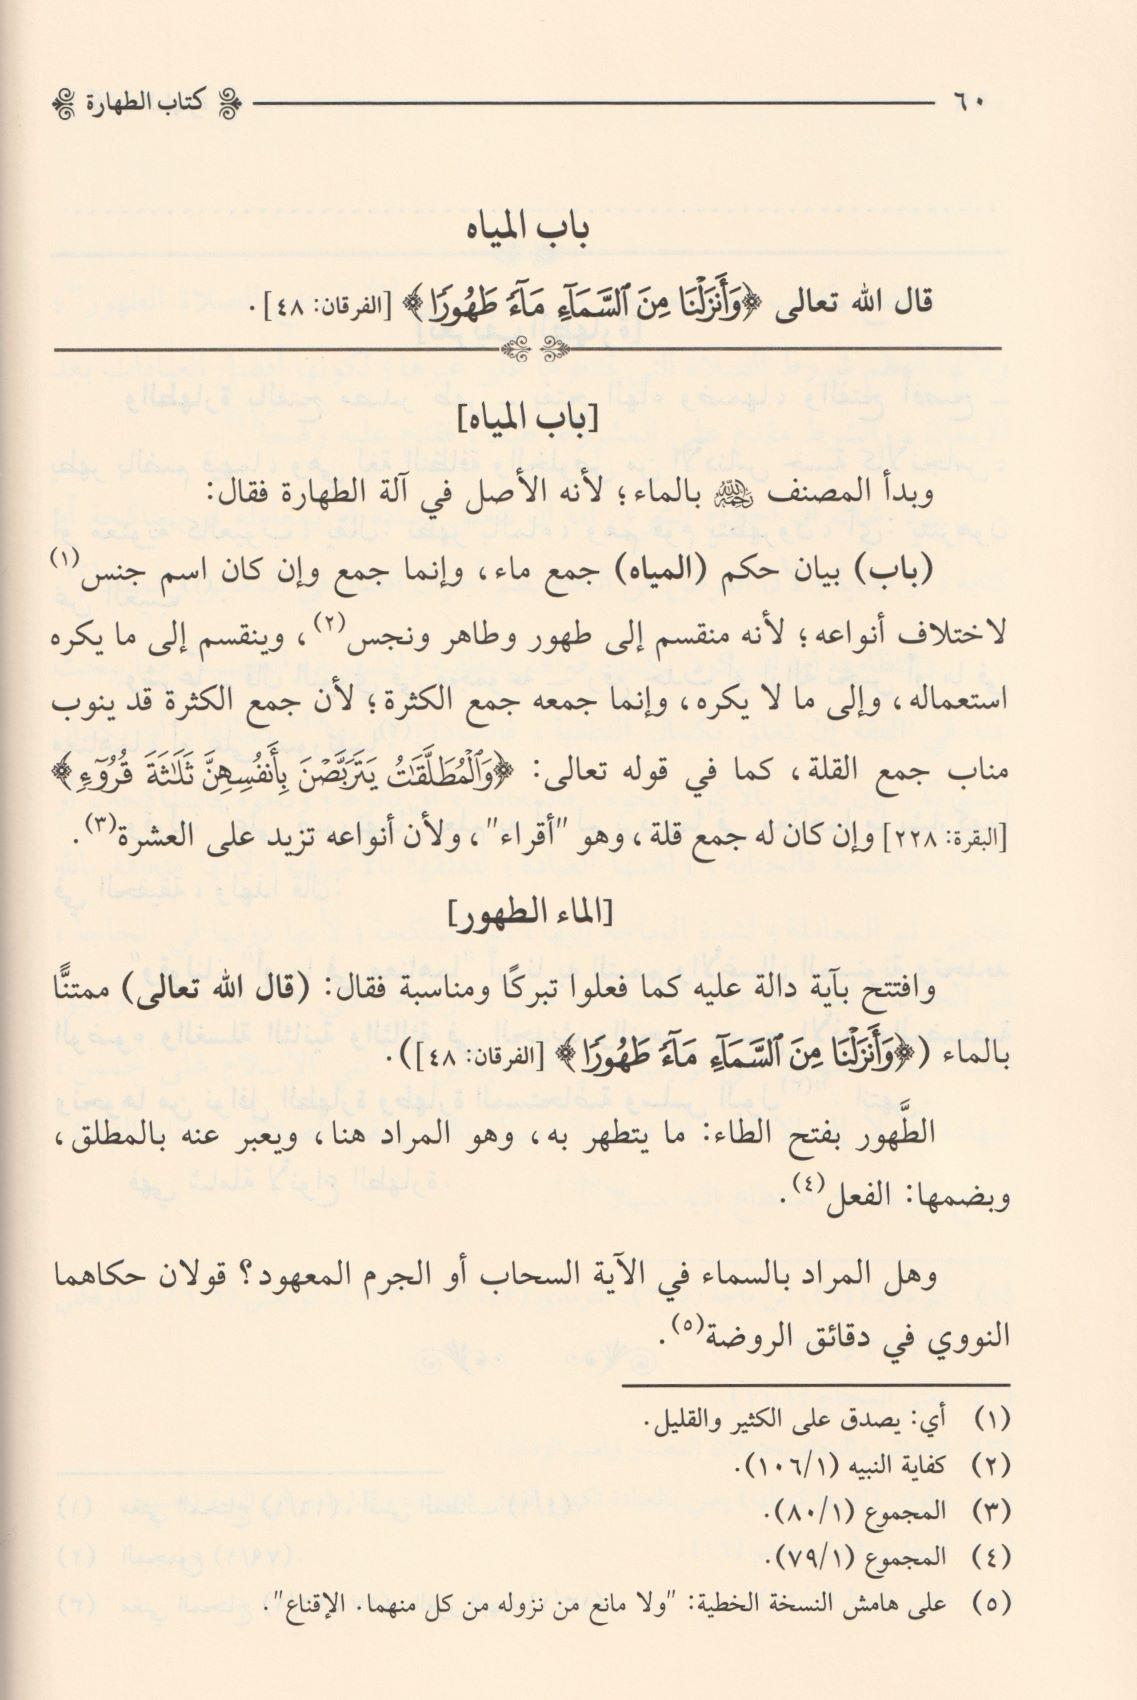 ٦٠ كتاب الطهارة
باب المياه
قال الله تعالى ﴿وَأَنزَلْنَا مِنَ ٱلسَّمَآءِ مَآءً طَهُورًا﴾ [الفرقان: ٤٨].
[باب المياه]
وبدأ المصنف رحمه الله بالماء؛ لأنه الأصل في آلة الطهارة فقال:
(باب) بيان حكم (المياه) جمع ماء، وإنما جمع وإن كان اسم جنس(١)
لاختلاف أنواعه؛ لأنه منقسم إلى طهور وطاهر ونجس(٢)، وينقسم إلى ما يكره
استعماله، وإلى ما لا يكره، وإنما جمعه جمع الكثرة؛ لأن جمع الكثرة قد ينوب
مناب جمع القلة، كما في قوله تعالى: ﴿وَٱلْمُطَلَّقَٰتُ يَتَرَبَّصْنَ بِأَنفُسِهِنَّ ثَلَٰثَةَ قُرُوٓءٍ﴾
[البقرة: ٢٢٨] وإن كان له جمع قلة، وهو "أقراء"، ولأن أنواعه تزيد على العشرة(٣).
[الماء الطهور]
وافتتح بآية دالة عليه كما فعلوا تبركًا ومناسبة فقال: (قال الله تعالى) ممتنًّا
بالماء (﴿وَأَنزَلْنَا مِنَ ٱلسَّمَآءِ مَآءً طَهُورًا﴾ [الفرقان: ٤٨]).
الطَّهور بفتح الطاء: ما يتطهر به، وهو المراد هنا، ويعبر عنه بالمطلق،
وبضمها: الفعل(٤).
وهل المراد بالسماء في الآية السحاب أو الجرم المعهود؟ قولان حكاهما
النووي في دقائق الروضة(٥).
(١) أي: يصدق على الكثير والقليل.
(٢) كفاية النبيه (١٠٦/١).
(٣) المجموع (٨٠/١).
(٤) المجموع (٧٩/١).
(٥) على هامش النسخة الخطية: "ولا مانع من نزوله من كل منهما. الإقناع".